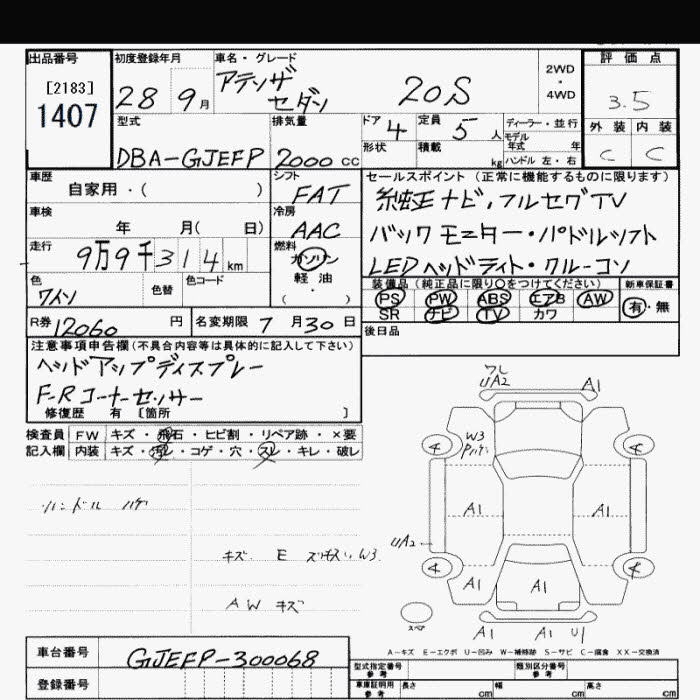 出品番号
[2183]
1407
初度登録年月
28 9月
車名・グレード
アテンザ
セダン
20S
2WD
・
4WD
評価点
3.5
外装 内装
C C
型式
DBA-GJEFP
排気量
2000 cc
ドア 4
定員 5 人
形状
積載 kg
ディーラー・並行
モデル
年式 年
ハンドル 左・右
車歴
自家用・( )
シフト
FAT
車検
年 月( 日)
冷房
AAC
走行
9万9千314 km
燃料
ガソリン
軽油
( )
色
ワイン
色替
色コード
R券 12060 円
名変期限 7月30日
セールスポイント(正常に機能するものに限ります)
純正ナビ,フルセグTV
バックモニター・パドルシフト
LEDヘッドライト・クルーコン
装備品(純正品に限り○をつけてください)
新車保証書
PS PW ABS エアB AW
SR ナビ TV カワ
有・無
後日品
注意事項申告欄(不具合内容等は具体的に記入して下さい)
ヘッドアップディスプレー
F-Rコーナーセンサー
修復歴 有 〔箇所 〕
検査員 FW キズ・飛石・ヒビ割・リペア跡・×要
記入欄 内装 キズ・汚レ・コゲ・穴・スレ・キレ・破レ
ハンドル ハゲ
キズ E W3
AW キズ
ワレ
UA2 A1
4 W3 4
A1 A1
UA2
4 4
A1 A1
スペア
A1 A1 U1
A-キズ E-エクボ U-凹み W-補修跡 S-サビ C-腐食 XX-交換済
車台番号 GJEFP-300068
登録番号
型式指定番号
参考
類別区分番号
参考
車庫証明用
参考
長さ cm 幅 cm 高さ cm